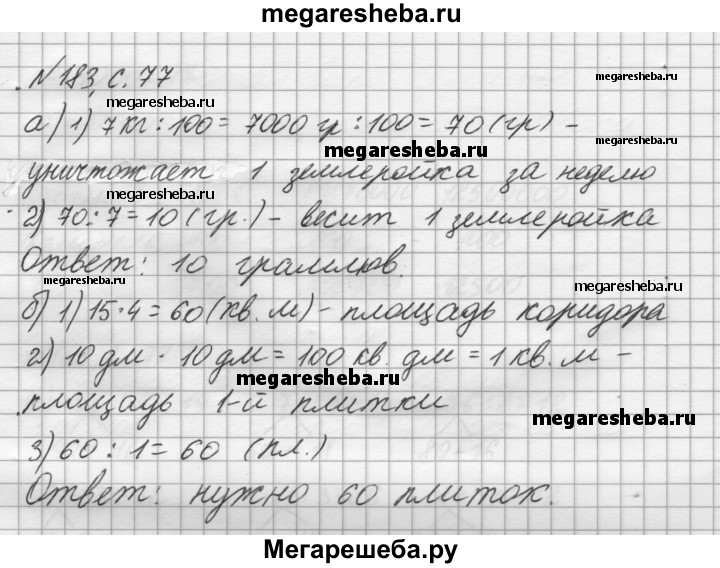 megaresheba.ru
№ 183, с. 77
megaresheba.ru
megaresheba.ru
а) 1) 7 кг : 100 = 7000 гр : 100 = 70 (гр) -
megaresheba.ru
уничтожает 1 землеройка за неделю
megaresheba.ru
2) 70 : 7 = 10 (гр.) - весит 1 землеройка
Ответ: 10 граммов.
megaresheba.ru
megaresheba.ru
б) 1) 15 · 4 = 60 (кв. м) - площадь коридора
2) 10 дм · 10 дм = 100 кв. дм = 1 кв. м -
megaresheba.ru
площадь 1-й плитки
megaresheba.ru
3) 60 : 1 = 60 (пл.)
Ответ: нужно 60 плиток.
Мегарешеба.ру